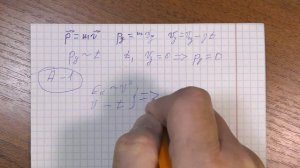 p⃗ = mv⃗ py = mvy vy = vy - gt
py ~ t t, vy = 0 => py = 0
A - 1
Eк ~ v²
v ~ t } =>